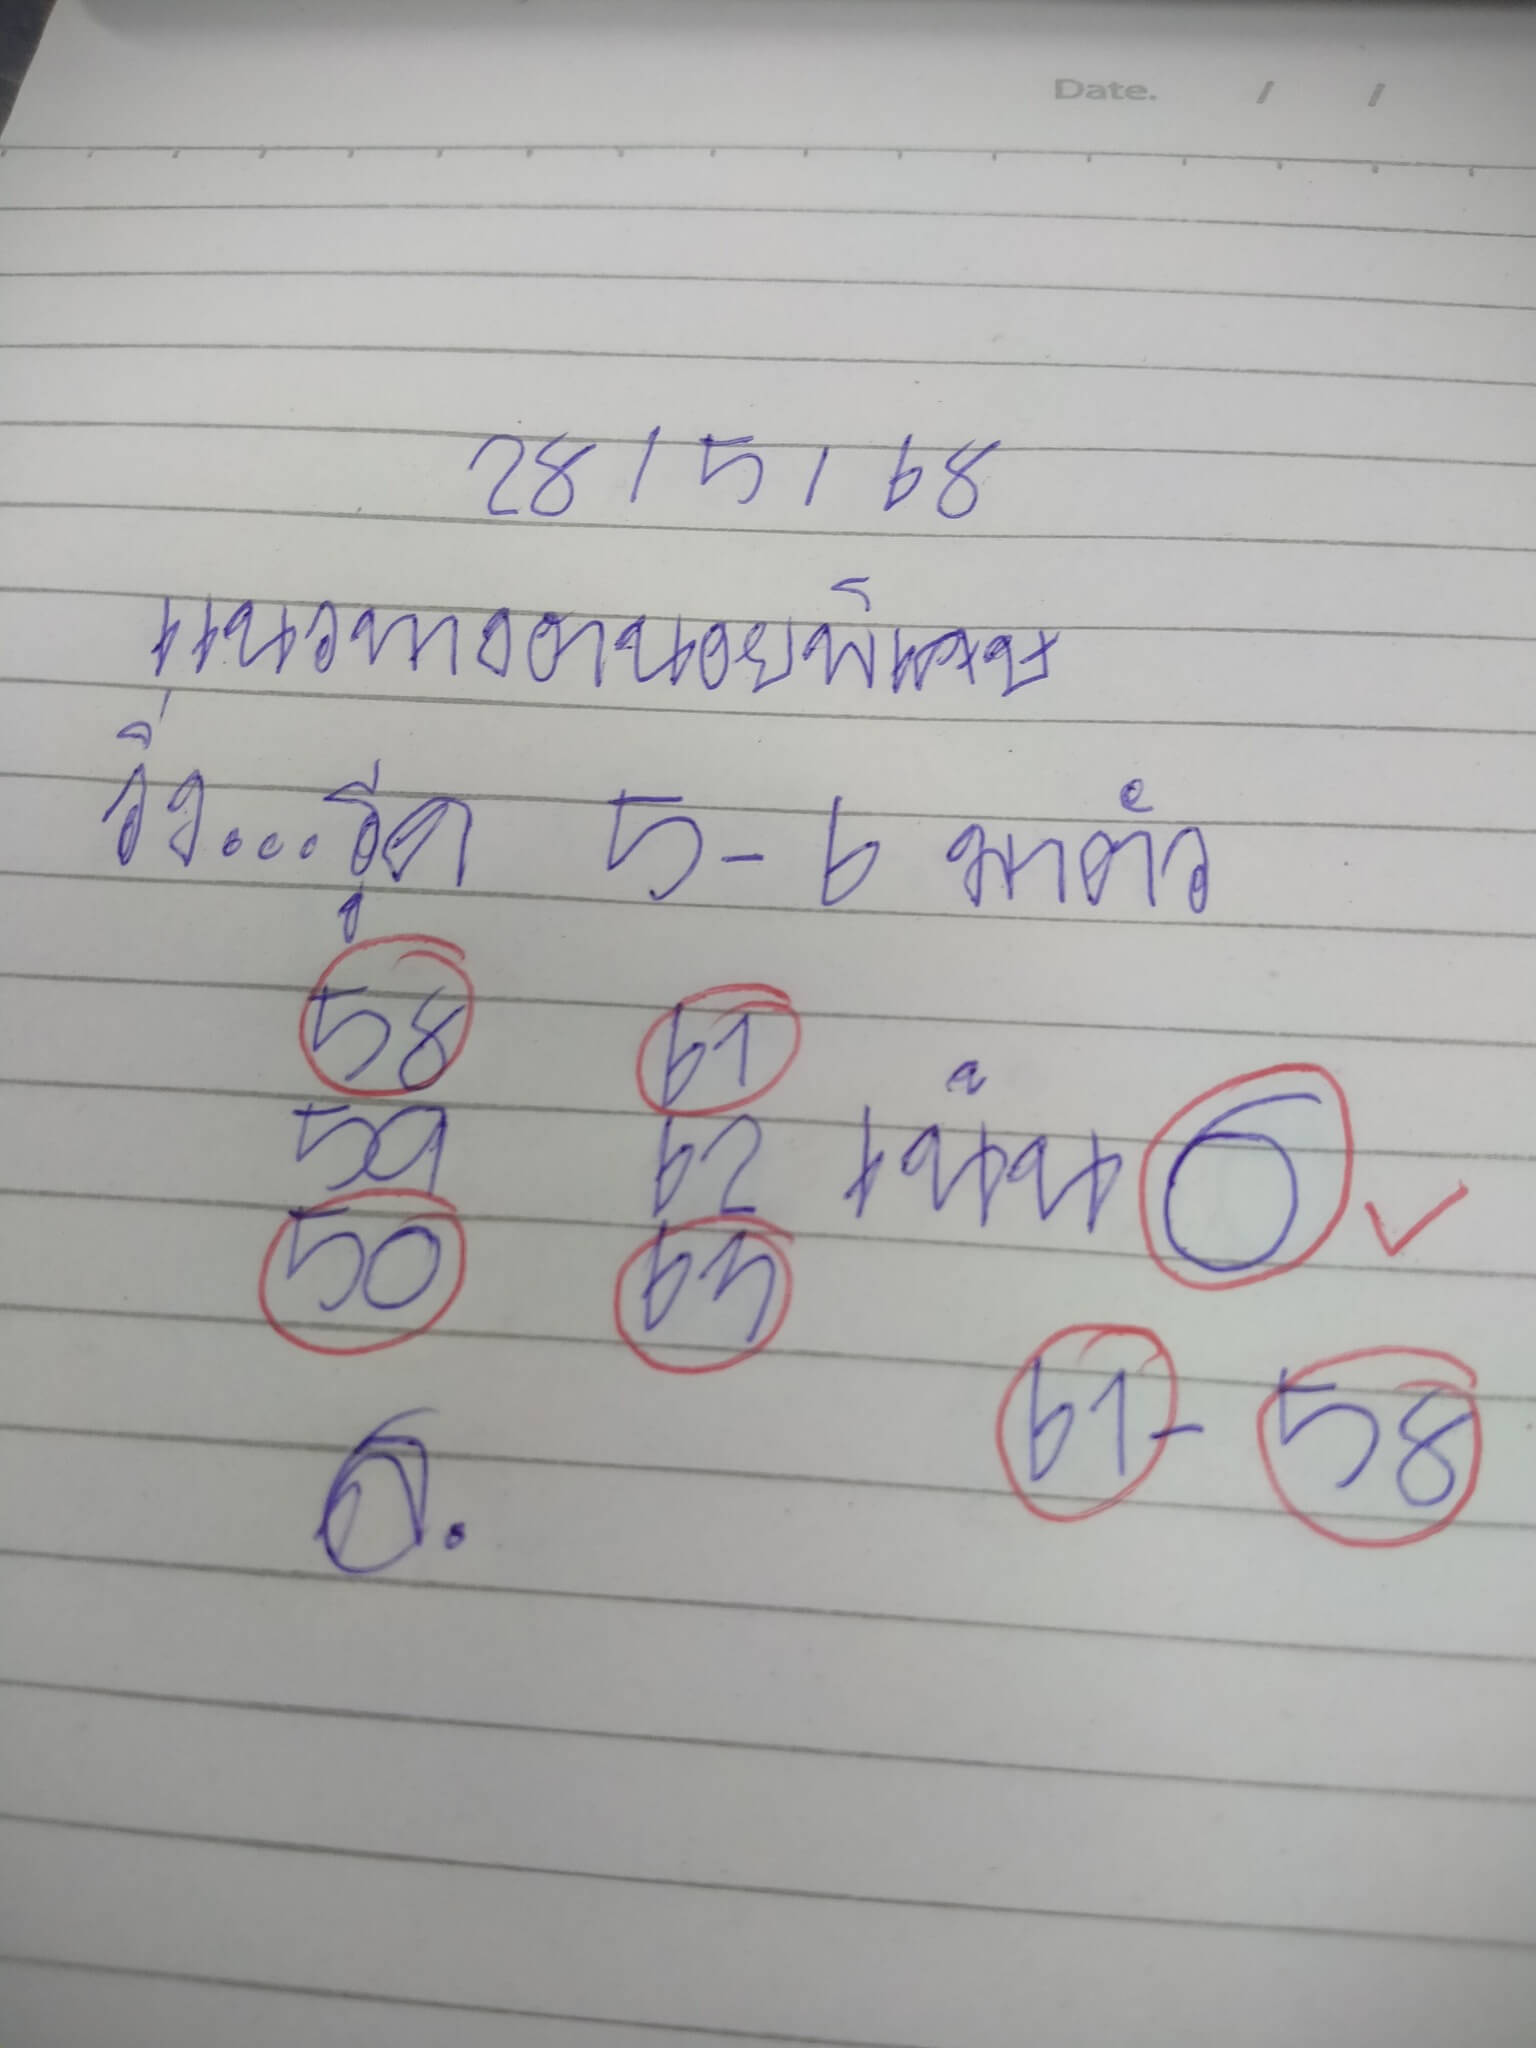 Date. / /
28/5/68
แนวทางฮานอยพิเศษ
วิ่ง...รูด 5-6 มาตัว
58 61
59 62 เน้น 6
50 63
61-58
6.